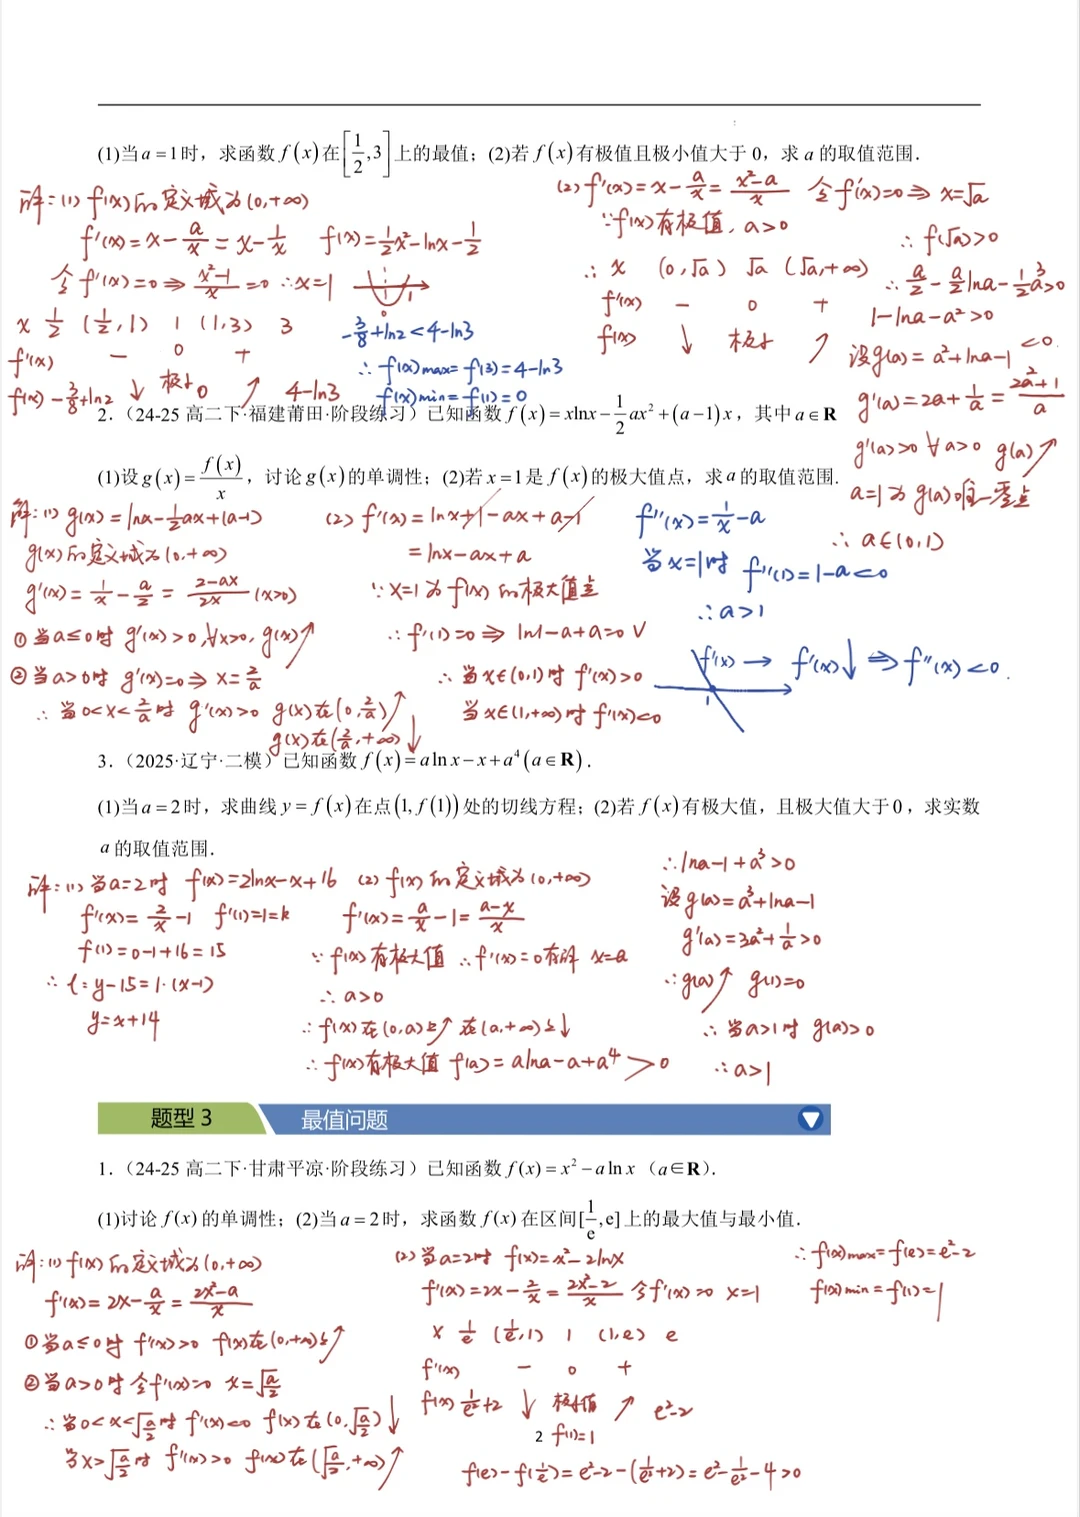 (1)当a=1时，求函数f(x)在[1/2,3]上的最值；(2)若f(x)有极值且极小值大于0，求a的取值范围.
解：(1) f(x)的定义域为(0,+∞)
f'(x)=x-a/x=x-1/x  f(x)=1/2x²-lnx-1/2
令f'(x)=0⇒(x²-1)/x=0 ∴x=1
x 1/2 (1/2,1) 1 (1,3) 3
f'(x) - 0 +
f(x) -3/8+ln2 ↓ 极小0 ↗ 4-ln3
-3/8+ln2<4-ln3
∴f(x)max=f(3)=4-ln3
f(x)min=f(1)=0
(2) f'(x)=x-a/x=(x²-a)/x 令f'(x)=0⇒x=√a
∵f(x)有极值，a>0
∴ x (0,√a) √a (√a,+∞)
f'(x) - 0 +
f(x) ↓ 极小 ↗
∴f(√a)>0
∴a/2-a/2lna-1/2a³>0
1-lna-a²>0
设g(a)=a²+lna-1<0
g'(a)=2a+1/a=(2a²+1)/a
g'(a)>0 ∀a>0 g(a)↗
a=1为g(a)唯一零点
∴a∈(0,1)
2.（24-25高二下·福建莆田·阶段练习）已知函数f(x)=xlnx-1/2ax²+(a-1)x，其中a∈R
(1)设g(x)=f(x)/x，讨论g(x)的单调性；(2)若x=1是f(x)的极大值点，求a的取值范围.
解：(1) g(x)=lnx-1/2ax+(a-1)
g(x)的定义域为(0,+∞)
g'(x)=1/x-a/2=(2-ax)/2x (x>0)
①当a≤0时 g'(x)>0,∀x>0, g(x)↗
②当a>0时 g'(x)=0⇒x=2/a
∴当0<x<2/a时 g'(x)>0 g(x)在(0,2/a)↗
g(x)在(2/a,+∞)↓
(2) f'(x)=lnx+1-ax+a-1
=lnx-ax+a
∵x=1为f(x)的极大值点
∴f'(1)=0⇒ln1-a+a=0 √
∴当x∈(0,1)时 f'(x)>0
当x∈(1,+∞)时f'(x)<0
f''(x)=1/x-a
当x=1时 f''(1)=1-a<0
∴a>1
f'(x) → f'(x)↓ ⇒ f''(x)<0.
1
3.（2025·辽宁·二模）已知函数f(x)=alnx-x+a⁴(a∈R).
(1)当a=2时，求曲线y=f(x)在点(1,f(1))处的切线方程；(2)若f(x)有极大值，且极大值大于0，求实数
a的取值范围.
解：(1)当a=2时 f(x)=2lnx-x+16
f'(x)=2/x-1 f'(1)=1=k
f(1)=0-1+16=15
∴l：y-15=1·(x-1)
y=x+14
(2) f(x)的定义域为(0,+∞)
f'(x)=a/x-1=(a-x)/x
∵f(x)有极大值 ∴f'(x)=0有解 x=a
∴a>0
∴f(x)在(0,a)上↗ 在(a,+∞)上↓
∴f(x)有极大值 f(a)=alna-a+a⁴>0
∴lna-1+a³>0
设g(a)=a³+lna-1
g'(a)=3a²+1/a>0
∴g(a)↗ g(1)=0
∴当a>1时 g(a)>0
∴a>1
题型3 最值问题
1.（24-25高二下·甘肃平凉·阶段练习）已知函数f(x)=x²-alnx（a∈R）.
(1)讨论f(x)的单调性；(2)当a=2时，求函数f(x)在区间[1/e,e]上的最大值与最小值.
解：(1) f(x)的定义域为(0,+∞)
f'(x)=2x-a/x=(2x²-a)/x
①当a≤0时 f'(x)>0 f(x)在(0,+∞)上↗
②当a>0时 令f'(x)=0 x=√(a/2)
∴当0<x<√(a/2)时 f'(x)<0 f(x)在(0,√(a/2))↓
当x>√(a/2)时 f'(x)>0 f(x)在(√(a/2),+∞)↗
(2)当a=2时 f(x)=x²-2lnx
f'(x)=2x-2/x=(2x²-2)/x 令f'(x)=0 x=1
x 1/e (1/e,1) 1 (1,e) e
f'(x) - 0 +
f(x) 1/e²+2 ↓ 极小值 ↗ e²-2
f(1)=1
f(e)-f(1/e)=e²-2-(1/e²+2)=e²-1/e²-4>0
∴f(x)max=f(e)=e²-2
f(x)min=f(1)=1
2